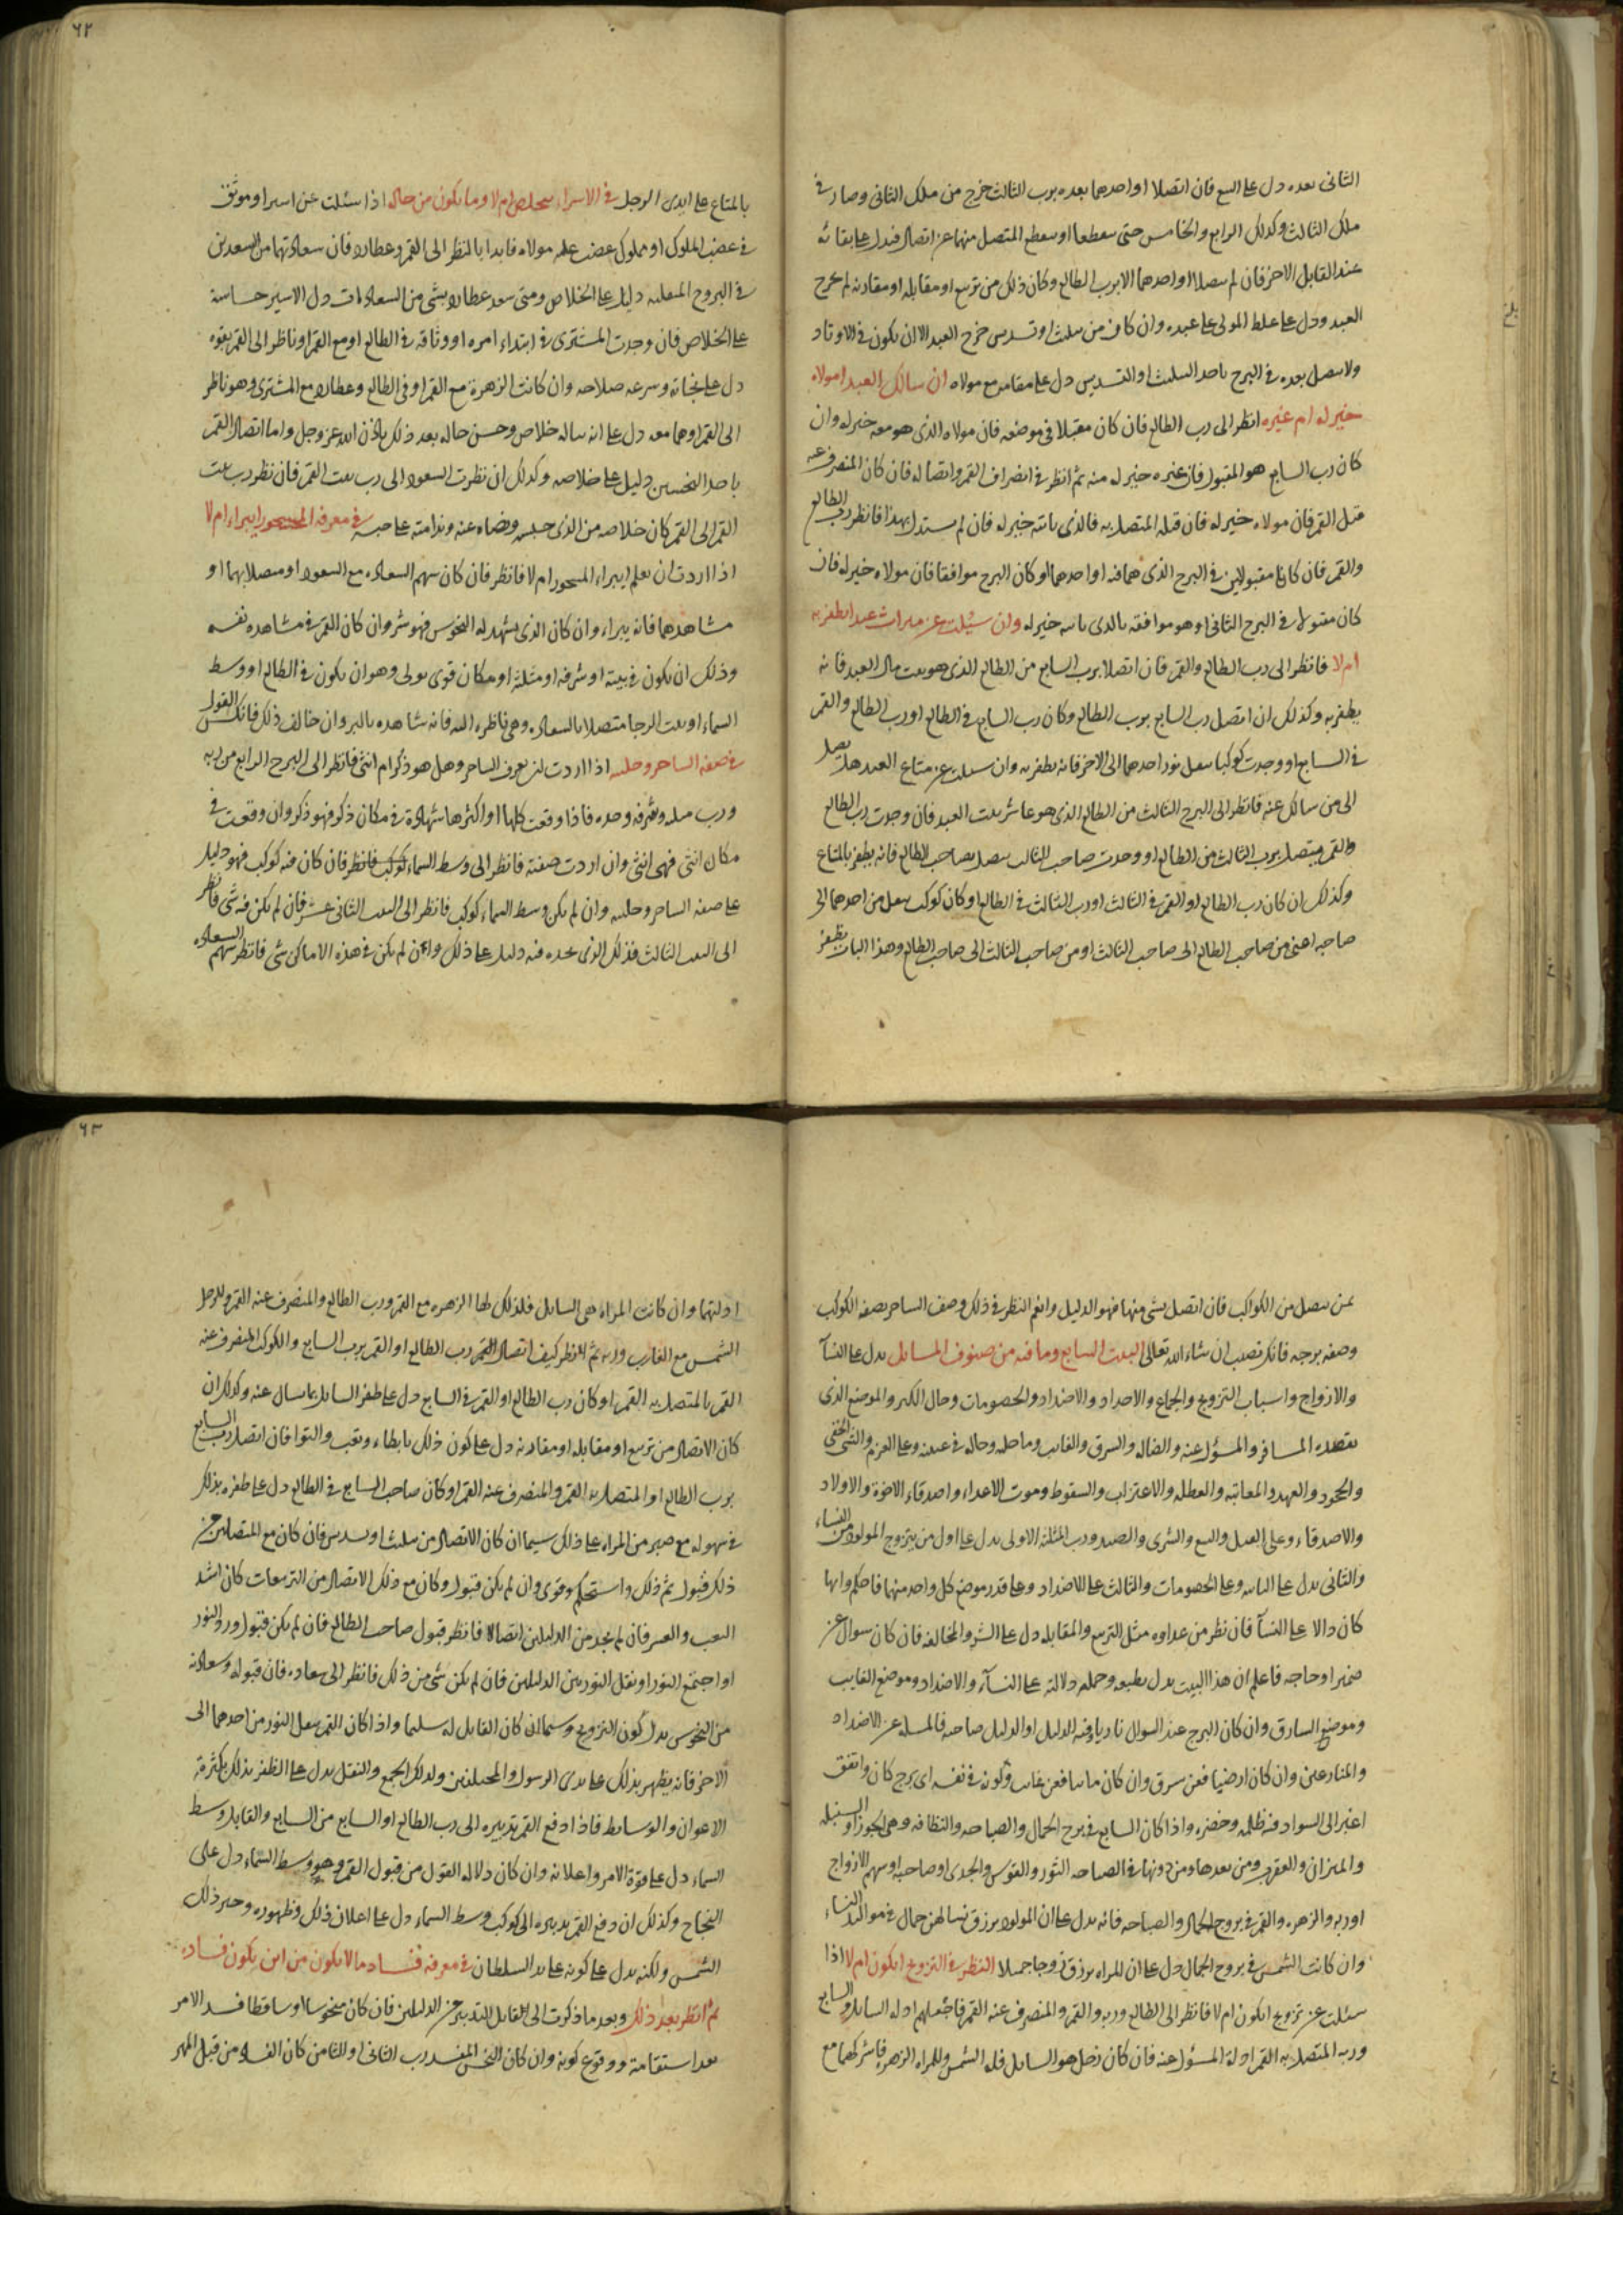 ٦٢
الثانى بعده دل على البيع فان اتصلا او احدهما بعده برب الثالث خرج من ملك الثانى وصار فى
ملك الثالث وكذلك الرابع والخامس حتى او المتصل منهما عن اتصال فيدل على بقائه
عند القابل الاخر فان لم يتصلا او احدهما الا برب الطالع وكان ذلك من تربيع او مقابلة او مقارنة لم يخرج
العبد ودل على غلظ المولى على عبده وان كان من تثليث او تسديس خرج العبد الا ان يكون فى الاوتاد
ولا يتصل بعده فى البرج باحد التثليث او التسديس دل على مقامه مع مولاه ان سالك العبد امولاه
خير له ام غيره انظر الى رب الطالع فان كان مقبلا فى موضعه فان مولاه الذى هو معه خير له وان
كان رب السابع هو المقبول فان غيره خير له منه ثم انظر فى انصراف القمر واتصاله فان كان المنصرف عنه
قبل القمر فان مولاه خير له فان قبله المتصل به فالذى ياتيه خير له فان لم يستدل بهذا فانظر رب الطالع
والقمر فان كانا مقبولين فى البرج الذى هما فيه او احدهما او كان البرج موافقا فان مولاه خير له فان
كان مقبولا فى البرج الثانى او هو موافقه فالذى ياتيه خير له وان سئلت عن ميراث عبد ايظفر به
ام لا فانظر الى رب الطالع والقمر فان اتصلا برب السابع من الطالع الذى هو بيت مال العبد فانه
يظفر به وكذلك ان اتصل رب السابع برب الطالع وكان رب السابع فى الطالع او رب الطالع والقمر
فى السابع او وجدت كوكبا ينقل نور احدهما الى الاخر فانه يظفر به وان سئلت عن متاع العبد هل يصل
الى من سالك عنه فانظر الى البرج الثالث من الطالع الذى هو عاشر بيت العبد فان وجدت رب الطالع
والقمر يتصل برب الثالث من الطالع او وجدت صاحب الثالث يتصل بصاحب الطالع فانه يظفر بالمتاع
وكذلك ان كان رب الطالع او القمر فى الثالث او رب الثالث فى الطالع او كان كوكب ينقل من احدهما الى
صاحبه اعنى من صاحب الطالع الى صاحب الثالث او من صاحب الثالث الى صاحب الطالع وهذا الباب يظفر
بالمتاع على ايدى الرجل فى الاسراء يتخلص ام لا وما يكون من حاله اذا سئلت عن اسير او موثق
فى غضب الملوك او مملوك غضب عليه مولاه فابدا بالنظر الى القمر وعطارد فان سعادتهما من السعدين
فى البروج المنقلبة دليل على الخلاص ومتى سعد عطارد بشى من السعادات دل الاسير
على الخلاص فان وجدت المشترى فى ابتداء امره او وثاقه فى الطالع او مع القمر او ناظر الى القمر بقوة
دل على نجاته وسرعة صلاحه وان كانت الزهرة مع القمر او فى الطالع وعطارد مع المشترى وهو ناظر
الى القمر او هما معه دل على انه ساله خلاص وحسن حاله بعد ذلك باذن الله عز وجل واما اتصال القمر
باحد النحسين دليل على خلاصه وكذلك ان نظرت السعود الى رب بيت القمر فان نظر رب بيت
القمر الى القمر كان خلاصه من الذى حبسه ورضاه عنه وندامته على حبسه فى معرفة المسحور ايبراء ام لا
اذا اردت ان تعلم ايبراء المسحور ام لا فانظر فان كان سهم السعادة مع السعود او متصلا بهما او
مشاهدهما فانه يبراء وان كان الذى يشهد له النحوس فهو شر وان كان القمر فى مشاهدة نفسه
وذلك ان يكون فى بيته او شرفه او مثلثة او مكان قوى يولى وهو ان يكون فى الطالع او وسط
السماء او بيت الرجا متصلا بالسعادة وهى ناظرة اليه فانه شاهده بالبر وان خالف ذلك فانكس القول
فى صفة الساحر وحليته اذا اردت ان تعرف الساحر وهل هو ذكر ام انثى فانظر الى البرج الرابع من ربه
ورب وشرفه وحده فاذا وقعت كلها او اكثرها شهادة فى مكان ذكر فهو ذكر وان وقعت فى
مكان انثى فهى انثى وان اردت صفته فانظر الى وسط السماء كوكب فانظر فان كان فيه كوكب فهو دليل
على صفة الساحر وحليته وان لم يكن وسط السماء كوكب فانظر الى البيت الثانى عشر فان لم يكن فيه شى فانظر
الى البيت الثالث فذلك الذى تجده فيه دليل على ذلك وان لم يكن فى هذه الاماكن شى فانظر سهم السعادة
٦٣
بمن يتصل من الكواكب فان اتصل بشى منها فهو الدليل وانعم النظر فى ذلك وصف الساحر بصفة الكوكب
وصفة برجه فانك تصيب ان شاء الله تعالى البيت السابع وما فيه من صنوف المسايل يدل على النسآ
والازواج واسباب التزويج والجماع والاضداد والخصومات وحال الكبر والموضع الذى
يقصده المسافر والمسؤل عنه والضالة والسرق والغايب وما حله وحاله فى غيبته وعلى العزم والشى الخفى
والجحود والعهد والمعاتبة والعطلة والاغتراب والسقوط وموت الاعداء واصدقاء الاخوة والاولاد
والاصدقاء وعلى القتل والبيع والشرى والصيد ورب المثلثة الاولى يدل على اول من يتزوج المولود من النساء
والثانى يدل على الثانية وعلى الخصومات والثالث على الاضداد وعلى قدر موضع كل واحد منهما فاحكم وايها
كان دالا على النسآ فان نظر من عداوة مثل التربيع والمقابلة دل على الشر والمخالفة فان كان سوال عن
ضمير او حاجة فاعلم ان هذا البيت يدل بطبعه وجملة دلالته على النسآء والاضداد وموضع الغايب
وموضع السارق وان كان البرج عند السوال ناريا وفيه الدليل او الدليل صاحبه فالمسلة عن الاضداد
والمنازعين وان كان ارضيا فعن سرق وان كان مائيا فعن غايب ولونه فى نفسه اى برج كان واتفق
اغبر الى السواد فيه ظلمة وخضرة واذا كان السابع فى برج الجمال والصباحة والنظافة وهى الجوزا والسنبلة
والميزان والعقرب ومن بعدها ومن دونها فى الصباحة الثور والقوس والجدى او صاحبه او سهم الازواج
او ربه والزهرة والقمر فى بروج الجمال والصباحة فانه يدل على ان المولود يرزق نسا لهن جمال فى مواليد النساء
وان كانت الشمس فى بروج الجمال دل على ان المراه يرزق زوجا جميلا النظر فى التزويج ايكون ام لا اذا
سئلت عن تزويج ايكون ام لا فانظر الى الطالع وربه والقمر والمنصرف عنه القمر فاجعلهم ادلة السايل والسابع
وربه المتصل به القمر ادلة المسؤل عنه فان كان رجل هو السايل فله الشمس وللمراه الزهرة فاشركهما مع
ادلتهما وان كانت المراه هى السايل فلذلك لها الزهرة مع القمر ورب الطالع والمنصرف عنه القمر وللرجل
الشمس مع الغارب وربه ثم انظر كيف اتصال القمر رب الطالع او القمر برب السابع والكوكب المنصرف عنه
القمر بالمتصل به القمر او كان رب الطالع او القمر فى السابع دل على ظفر السايل بما سال عنه وكذلك ان
كان الاتصال من تربيع او مقابلة او مقارنة دل على كون ذلك بابطاء وتعب والتوا فان اتصل رب السابع
برب الطالع او المتصل به القمر والمنصرف عنه القمر او كان صاحب السابع فى الطالع دل على ظفره بذلك
فى سهولة مع صبر من المراه على ذلك سيما ان كان الاتصال من تثليث او تسديس فان كان مع المتصلين من
ذلك قبول تم ذلك واستحكم وقوى وان لم يكن قبول وكان مع ذلك الاتصال من التربيعات كان اشد
التعب والعسر فان لم تجد من الدليلين اتصالا فانظر قبول صاحب الطالع فان لم يكن قبول ورد النور
او اجتمع النور او نقل النور بين الدليلين فان لم يكن شى من ذلك فانظر الى سعادة فان قبوله وسعادته
من النحوس يدل كون التزويج وسيما ان كان القابل له سليما واذا كان القمر ينقل النور من احدهما الى
الاخر فانه يظهر بذلك على يدى الرسول والمختلفين وكذلك الجمع والنقل يدل على الظفر بذلك بكثرة
الاعوان والوسايط فاذا دفع القمر تدبيره الى رب الطالع او السابع من السابع والقابل وسط
السماء دل على قوة الامر واعلانه وان كان دلالة القول من قبول القمر وهو وسط السماء دل على
النجاح وكذلك ان دفع القمر تدبيره الى كوكب وسط السماء دل على اعلان ذلك وظهوره وخير ذلك
الشمس ولكنه يدل على كونه على يد السلطان فى معرفة فساد ما لا يكون من اين يكون فساده
ثم انظر بعد ذلك وبعد ما ذكرت الى القابل التدبير من الدليلين فان كان منحوسا او ساقطا فسد الامر
بعد استقامته ووقوع كونه وان كان النحس المفسد رب الثانى او الثامن كان الفساد من قبل المهر